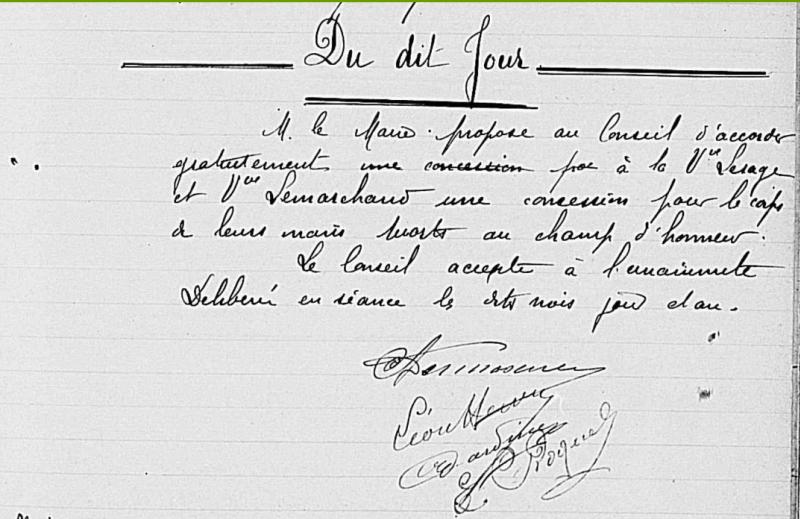 Du dit Jour
M. le Maire propose au Conseil d'accorder
gratuitement une concession pou à la Vve Lesage
et Vve Lemarchand une concession pour le corps
de leurs maris morts au champ d'honneur.
Le Conseil accepte à l'unanimité
Délibéré en séance les dits mois jour et an.
Léon